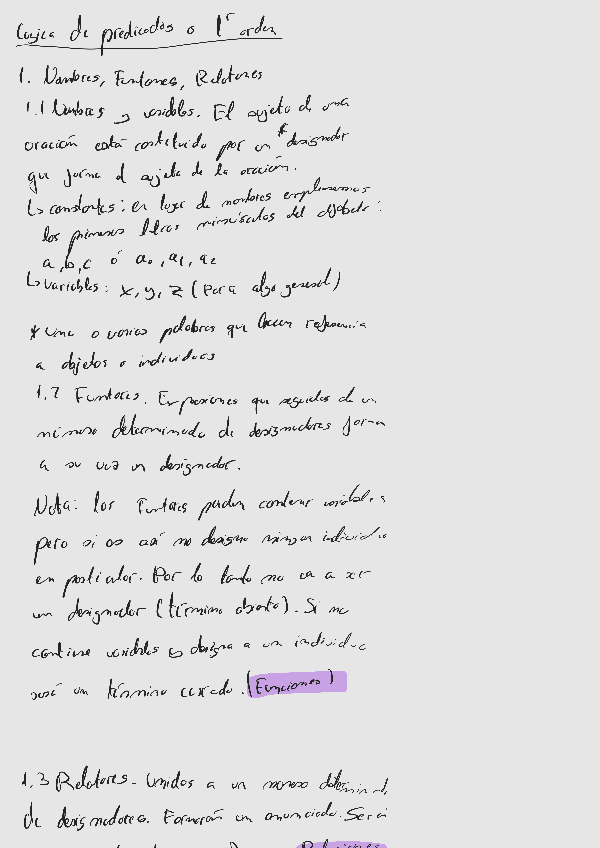 Lógica de predicados o 1er orden
1. Nombres, Funtores, Relatores
1.1 Nombres y variables. El sujeto de una
oración está constituido por un * designador
que forma el sujeto de la oración.
↳ constantes: en lugar de nombres emplearemos
las primeras letras minúsculas del alfabeto:
a, b, c ó a0, a1, a2
↳ Variables: x, y, z (para algo general)
* Una o varias palabras que hacen referencia
a objetos o individuos
1.2 Funtores. Expresiones que seguidas de un
número determinado de designadores forman
a su vez un designador.
Nota: los Funtores pueden contener variables
pero si es así no designa ningún individuo
en particular. Por lo tanto no va a ser
un designador (término abierto). Si no
contiene variables y designa a un individuo
será un término cerrado. (Funciones)
1.3 Relatores. Unidos a un número determinado
de designadores. Formarán un enunciado. Será
Relaciones